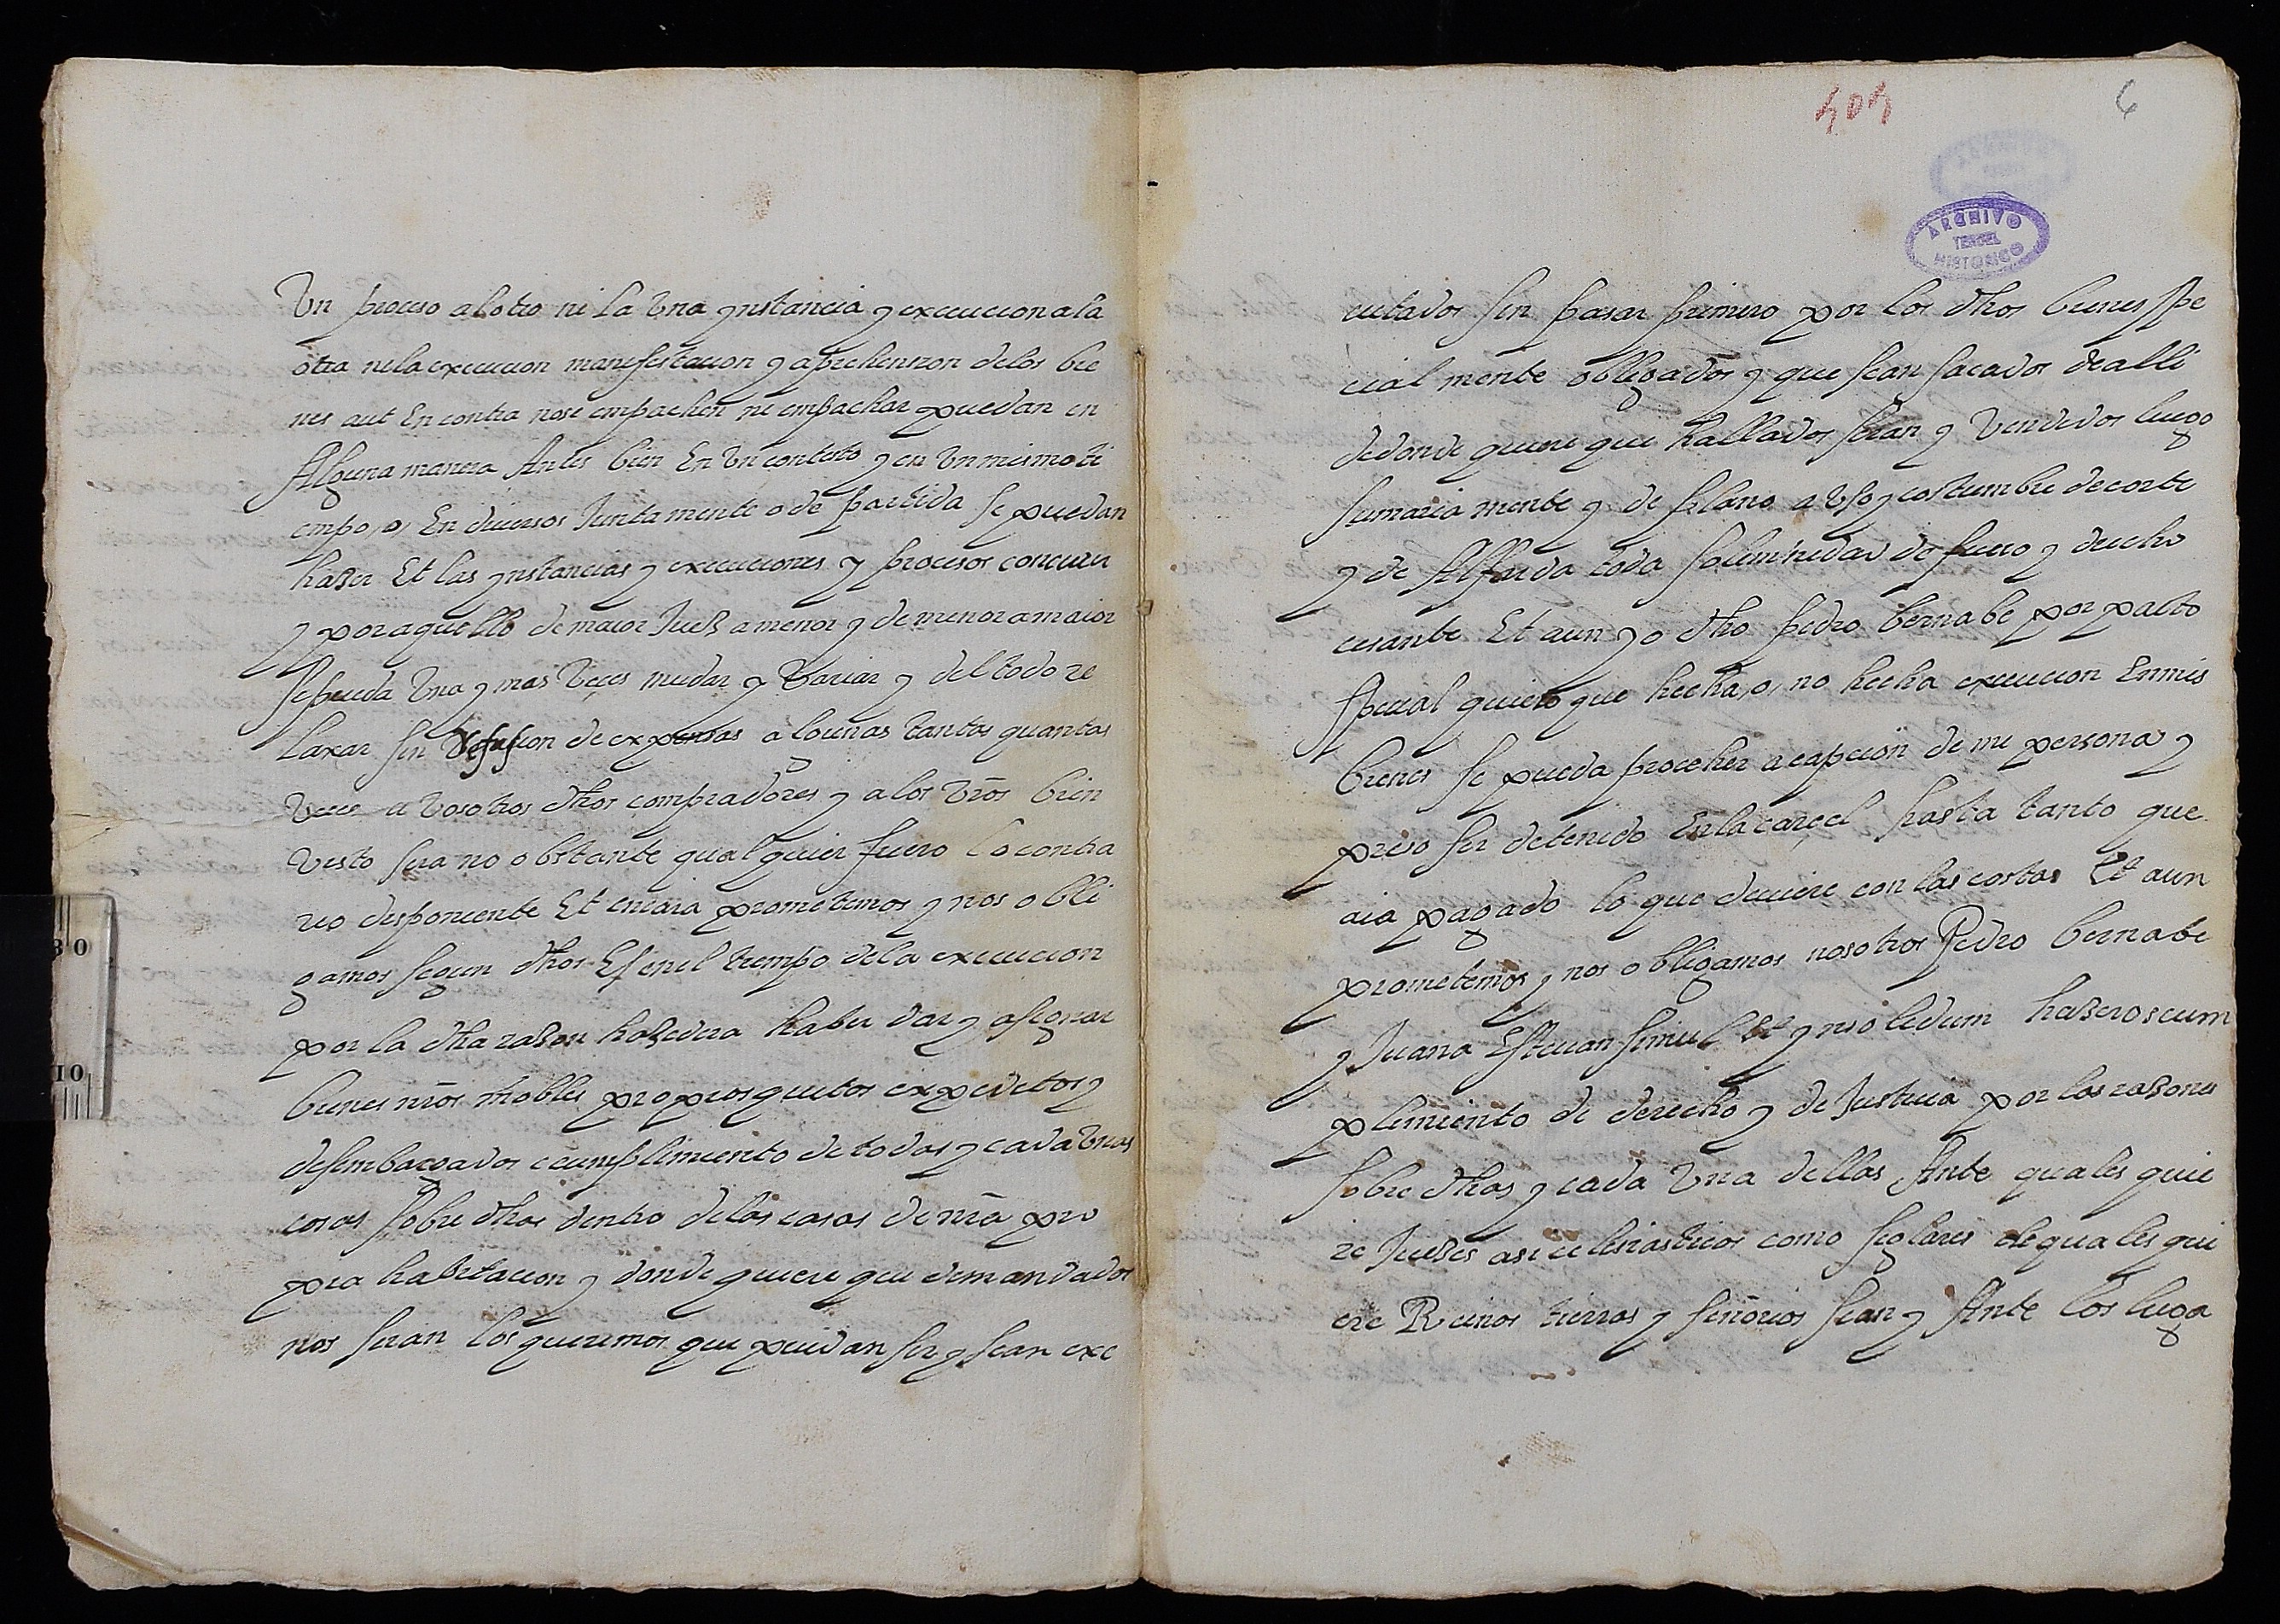 Un proceso alotro ni la Una ynstancia y execucion a la
otra ni la execucion manifestacion y aprehension delos bie
nes aut En contra nose empachen ni empachar puedan en
Alguna manera Antes bien En Un contesto y en Un mismo ti
empo, o, En diuersos Junta mente o de partida se puedan
hazer Et las ynstancias y execuciones y procesos concurren
y por aquello de maior Juez a menor y de menor a maior
Se pueda Una y mas Veçes mudar y Variar y del todo re
laxar sin Refusion de expensas algunas tantas quantas
Veces a Vosotros dhos compradores y a los Vros bien
Visto sera no obstante qualquier fuero lo contra
rio disponiente Et encara prometemos y nos obli
gamos segun dhos Es en el tiempo dela execucion
por la dha razon hazedera haber dar y asignar
bienes nros mobles propios quitos expeditos y
desembargados a cumplimiento de todas y cada Unas
cosas sobre dhas dentro delas casas de nra pro
pia habitacion y donde quiere que demandados
nos seran los queremos que puedan ser y sean exe
404
6
ARCHIVO
TERUEL
HISTORICO
cutados sin pasar primero por los dhos bienes spe
cial mente obligados y que sean sacados de alli
de donde quiere que hallados seran y Vendidos luego
sumaria mente y de plano a Uso y costumbre de corte
y de Alfarda toda solemnidad de fuero y drecho
cesante Et aun yo dho Pedro bernabe por pacto
special quiero que hecha, o, no hecha execucion En mis
bienes se pueda proceher a capçion de mi persona y
preso ser detenido En la carçel hasta tanto que
aia pagado lo que deuiere con las costas Et aun
prometemos y nos obligamos nosotros Pedro bernabe
y Juana Esteuan simul Et ynsolidum hazeros cum
plimiento de derecho y de Justicia por las razones
sobre dhas y cada Una dellas Ante quales quie
re Juezes asi eclesiasticos como seglares de quales qui
ere Reinos tierras y señorios sean y Ante los luga